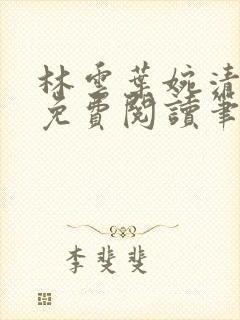 林雲葉婉清
免費閱讀筆
李斐斐